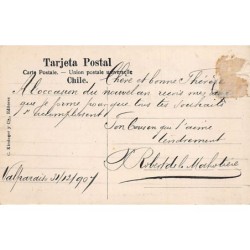 Tarjeta Postal
Carte Postale. - Union postale universelle
Chile.
Chère et bonne Thérèse
A l'occasion du nouvel an reçois mes
que je forme pour que tous tes souhaits
s'accomplissent
Ton Cousin qui t'aime
tendrement
Robert de la
Valparaiso 31/12/1907
C. Kirsinger y Cia., Editores